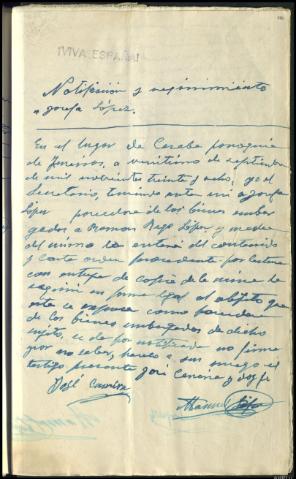 ¡VIVA ESPAÑA!
Notificación y requirimiento
a Josefa López.
En el lugar de Caraba parroquia
de a veintiuno de septiembre
de mil novecientos treinta y ocho, yo el
secretorio, teniendo ante mi a Josefa
López poseedora de los bienes embar
gados a Ramon Rego López, y madre
del mismo la enteré del contenido
y carta orden precedente por lectura
con entrega de copia de la misma la
requirí en forma legal al objeto que
ante se expresa como poseedora
de los bienes embargados de dicho
sujeto, se da por notificada no firma
por no saber, hacelo a sus ruego el
testigo presente José y doy fe
José
Manuel López